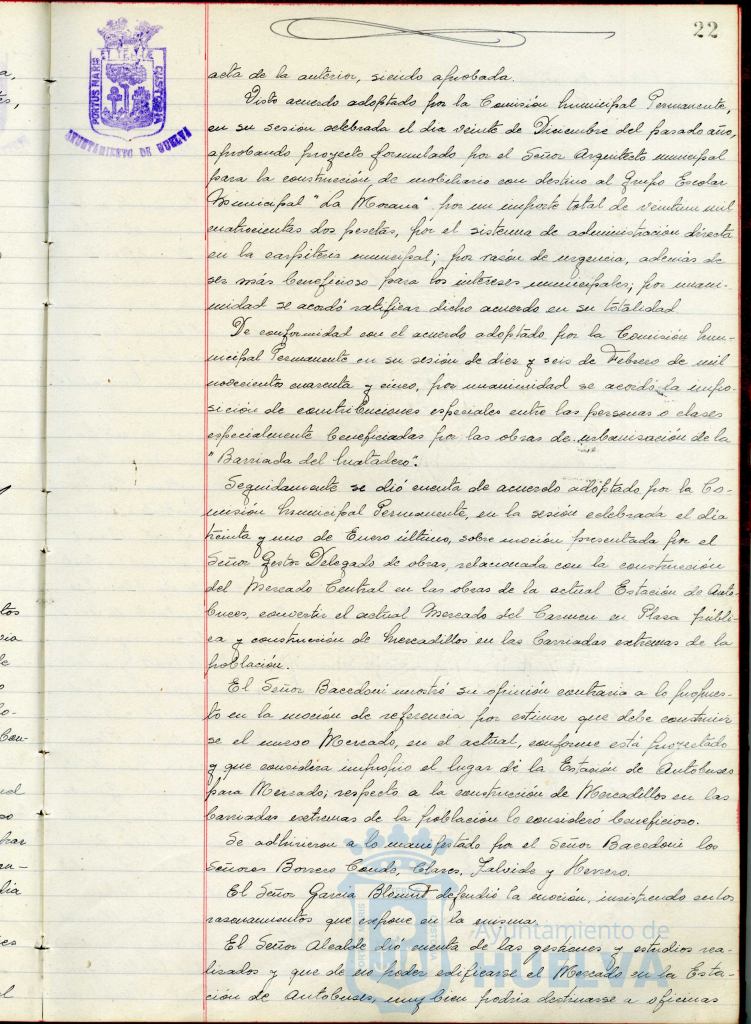 22
PORTUS MARIS ET TERRAE CUSTODIA
AYUNTAMIENTO DE HUELVA
acta de la anterior, siendo aprobada.
Visto acuerdo adoptado por la Comisión Municipal Permanente,
en su sesión celebrada el dia veinte de Diciembre del pasado año,
aprobando proyecto formulado por el Señor Arquitecto municipal
para la construcción de mobiliario con destino al Grupo Escolar
Municipal "La Morana" por un importe total de veintiun mil
cuatrocientas dos pesetas, por el sistema de administración directa
en la carpintería municipal; por razón de urgencia, además de
ser más beneficioso para los intereses municipales; por unani-
midad se acordó ratificar dicho acuerdo en su totalidad
De conformidad con el acuerdo adoptado por la Comisión Mu-
nicipal Permanente en su sesión de diez y seis de Febrero de mil
novecientos cuarenta y cinco, por unanimidad se acordó la impo-
sición de contribuciones especiales entre las personas o clases
especialmente beneficiadas por las obras de urbanización de la
"Barriada del Matadero".
Seguidamente se dió cuenta de acuerdo adoptado por la Co-
misión Municipal Permanente, en la sesión celebrada el día
treinta y uno de Enero último, sobre moción presentada por el
Señor Gestor Delegado de obras, relacionada con la construcción
del Mercado Central en las obras de la actual Estación de Auto-
buces, convertir el actual Mercado del Carmen en Plaza públi-
ca y construcción de Mercadillos en las barriadas extremas de la
población.
El Señor Bacedoni mostró su opinión contraria a lo propues-
to en la moción de referencia por estimar que debe construir-
se el nuevo Mercado, en el actual, conforme está proyectado
y que considera impropio el lugar de la Estación de Autobuses
para Mercado; respecto a la construcción de Mercadillos en las
barriadas extremas de la población lo considero beneficioso.
Se adhirieron a lo manifestado por el Señor Bacedoni los
Señores Borrero Conde, Clares, Zalvide y Herrero.
El Señor García defendió la moción, insistiendo en los
razonamientos que expone en la misma.
El Señor Alcalde dió cuenta de las gestiones y estudios rea-
lizados y que de no poder edificarse el Mercado en la Esta-
ción de Autobuses, muy bien podría destinarse a oficinas
Ayuntamiento de
HUELVA